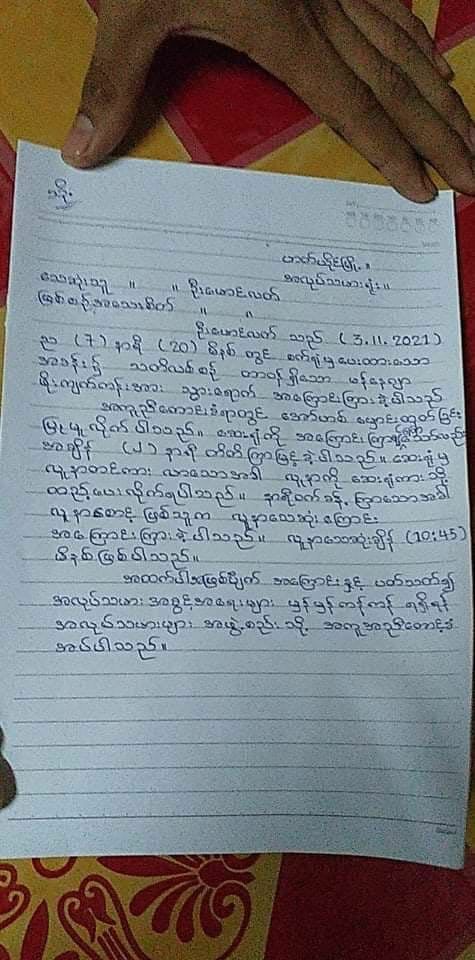 သို့
ဟတ်ယိုင်မြို့။
အလုပ်သမားရုံး။
သေဆုံးသူ ။ ။ ဦးမောင်လတ်
ဖြစ်စဉ်အသေးစိတ် ။ ။
ဦးမောင်လတ် သည် (3.11.2021)
ည (7) နာရီ (20) မိနစ် တွင် စက်ရုံမှပေးထားသော
အခန်း၌ သတိလစ်စဉ် တာဝန်ရှိသော မန်နေဂျာ
ဖိုးကျက်ကန်းအား သွားရောက် အကြောင်းကြားခဲ့ပါသည်
အကူညီတောင်းခံရာတွင် အော်ဟစ် မောင်းထုတ်ခြင်း
ပြုမူလိုက်ပါသည်။ ဆေးရုံကို အကြောင်းကြား
အချိန် (၂) နာရီ တိတိ ကြာမြင့်ခဲ့ပါသည်။ ဆေးရုံမှ
လူနာတင်ကား လာသောအခါ လူနာကို ဆေးရုံကားသို့
ထည့်ပေးလိုက်ရပါသည်။ နာရီဝက်ခန့် ကြာသောအခါ
လူနာစောင့် ဖြစ်သူက လူနာသေဆုံးကြောင်း
အကြောင်းကြားခဲ့ပါသည်။ လူနာသေဆုံးချိန် (10:45)
မိနစ်ဖြစ်ပါသည်။
အထက်ပါအဖြစ်ပျက် အကြောင်းနှင့် ပတ်သတ်၍
အလုပ်သမား အခွင့်အရေးများ မှန်မှန်ကန်ကန် ရရှိရန်
အလုပ်သမားများ အဖွဲ့စည်းသို့ အကူအညီတောင်းခံ
အပ်ပါသည်။